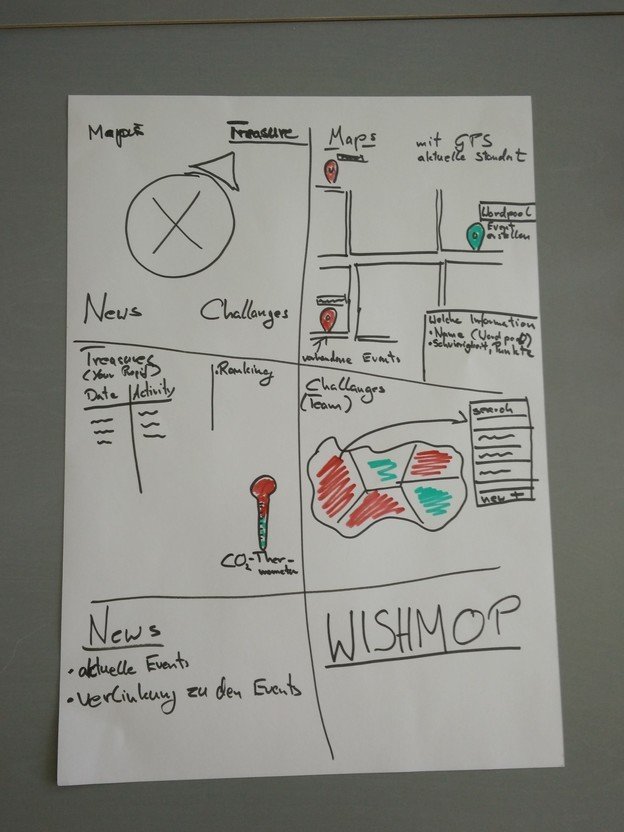 Maps
Treasure
News
Challanges
Maps
mit GPS
aktuelle Standort
Wordpool
Event
erstellen
vorhandene Events
Welche Information
• Name (Wordpool)
• Schwierigkeit, Punkte
Treasures
Date
Activity
• Ranking
CO₂-Ther-
mometer
Challanges
(Team)
search
new +
News
• aktuelle Events
• Verlinkung zu den Events
WISHMOP